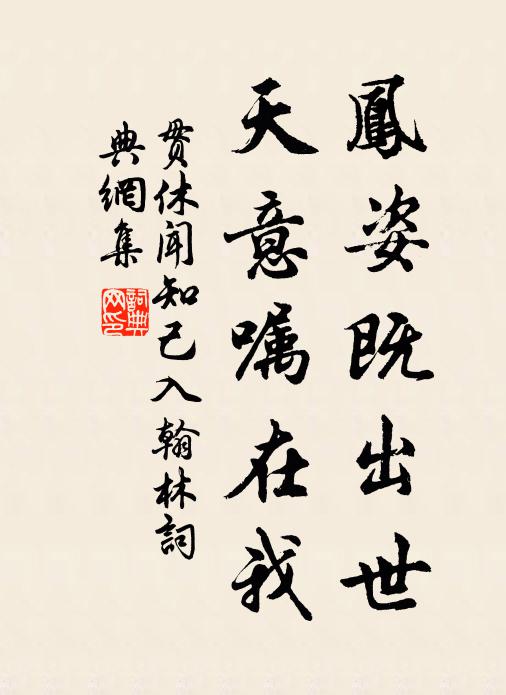 鳳姿既出世
天意嘱在我
貫休聞知己入翰林詞
典網集
詞典
网印